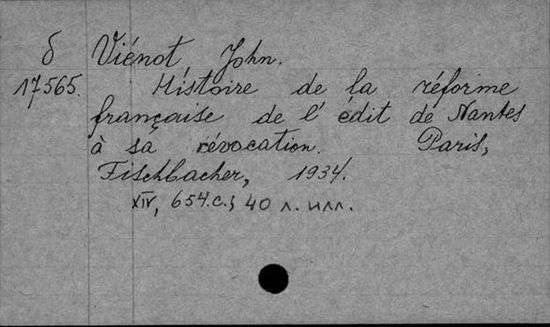 б Viénot, John.
17565. Histoire de la réforme
française de l'édit de Nantes
à sa révocation. Paris,
Fischbacher, 1934.
XIV, 654 с.; 40 л. илл.